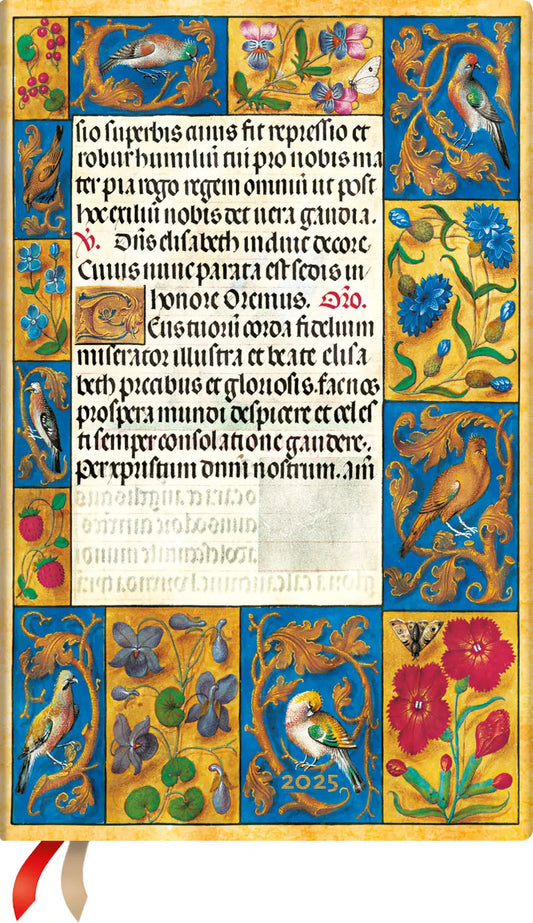 sio superbis cuius fit repressio et
robur humiliū tui pro nobis ma
ter pia rogo regem omniū ut post
hoc exiliū nobis det uera gaudia.
℣. Dn̄s elisabeth induit decore
Cuius nunc parata est sedis in
honore Oremus. Oro.
Deus tuorū corda fidelium
miserator illustra et beate elisa
beth precibus et gloriosis. fac nos
prospera mundi despicere et celes
ti semper consolatione gaudere.
Per xpristum dnm̄ nostrum. am̄
2025